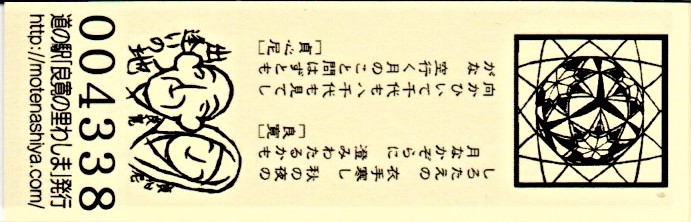 しろたえの 衣手寒し 秋の夜の
月なかぞらに 澄みわたるかも
［良寛］
向かひいて千代も八千代も見てし
がな 空行く月のこと問はずとも
［貞心尼］
出逢いの地
良寛
貞心尼
004338
道の駅「良寛の里わしま」発行
http://motenashiya.com/